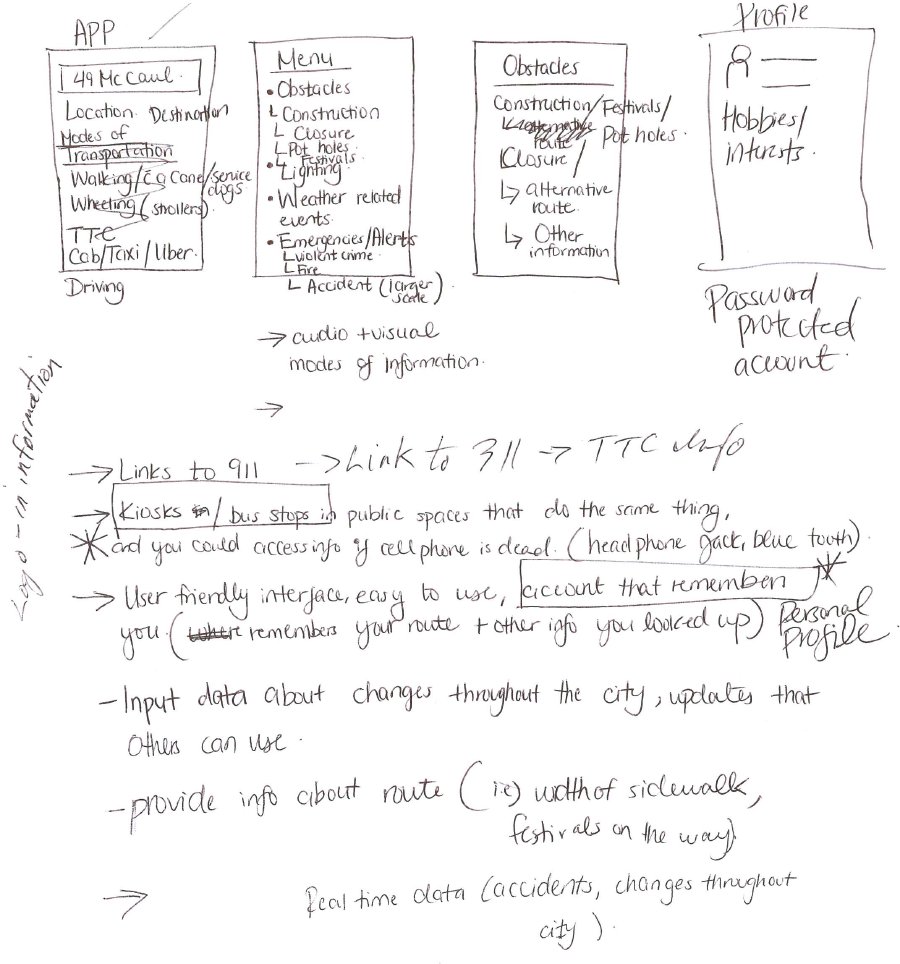 APP
49 McCaul.
Location. Destination
Modes of
Transportation
Walking/ Cane/service
dogs
Wheeling (strollers).
TTC
Cab/Taxi/Uber.
Driving
Menu
• Obstacles
Construction
Closure
Pot holes.
Festivals
• Lighting
• Weather related
events.
• Emergencies/Alerts
violent crime.
Fire
Accident (larger
scale).
→ audio + visual
modes of information.
→
Obstacles
Construction/Festivals/
Pot holes.
alternative
route
Closure/
↳ alternative
route.
↳ Other
information
Profile
Hobbies/
interests.
Password
protected
account.
Logo - in information
→ Links to 911 → Link to 311 → TTC info
→ Kiosks in/bus stops in public spaces that do the same thing,
* and you could access info if cellphone is dead. (headphone jack, blue tooth).
→ User friendly interface, easy to use, account that remembers *
you. (where remembers your route + other info you looked up) Personal
Profile.
- Input data about changes throughout the city, updates that
others can use.
- provide info about route (i.e) width of sidewalk,
festivals on the way).
→ Real time data (accidents, changes throughout
city).